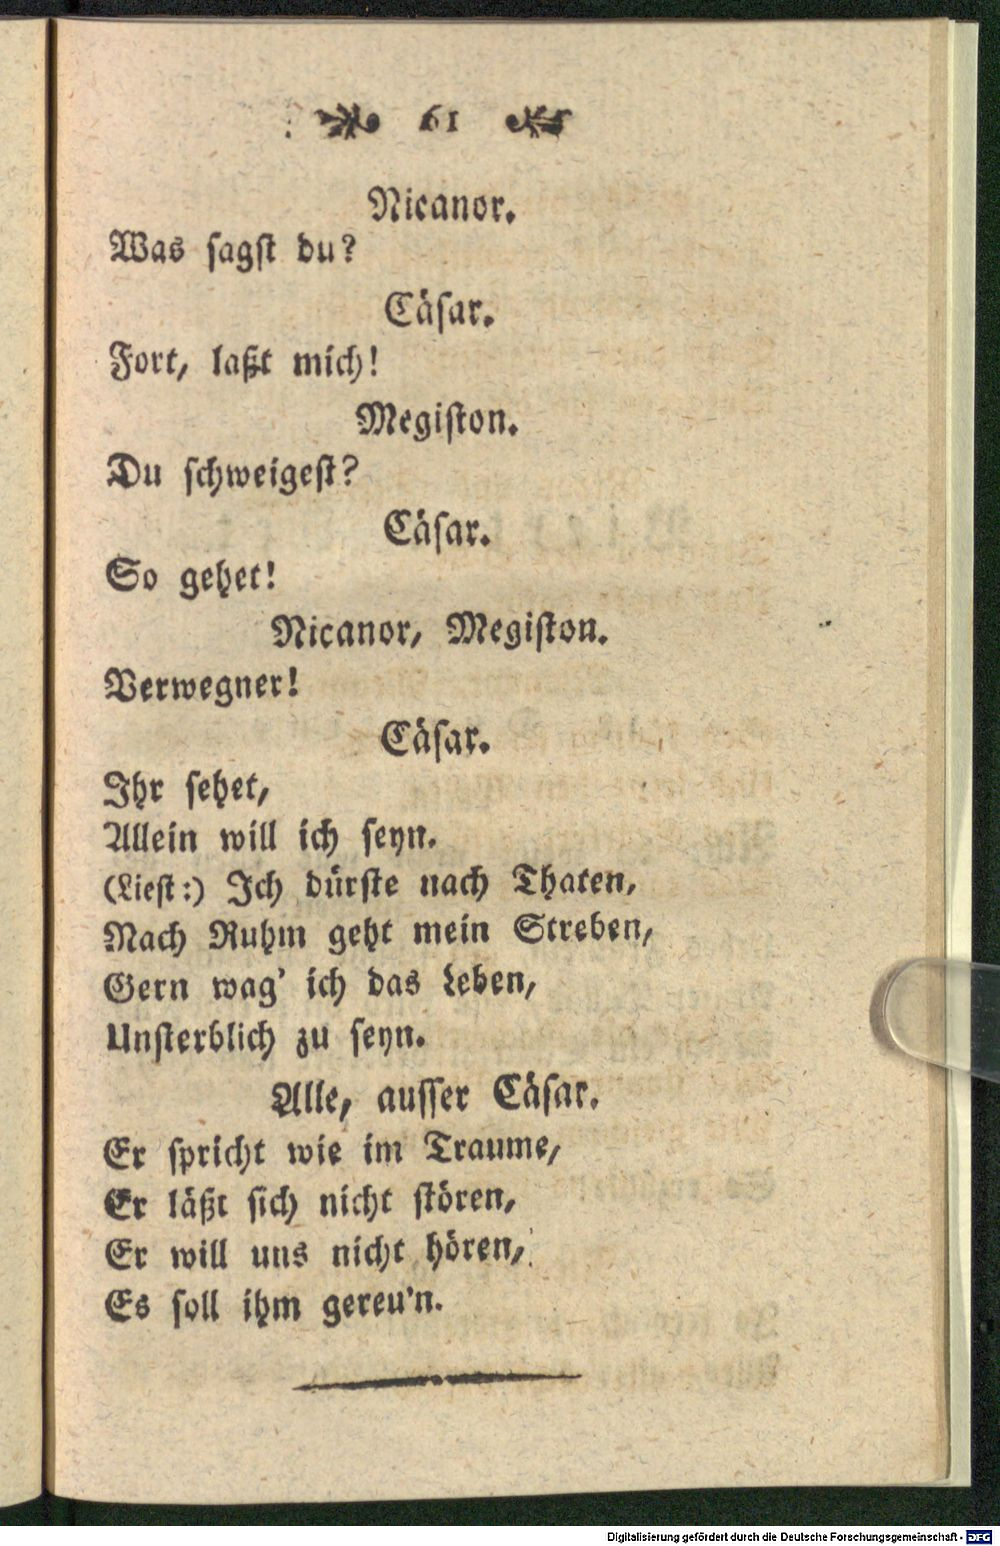 61
Nicanor.
Was sagst du?
Cäsar.
Fort, laßt mich!
Megiston.
Du schweigest?
Cäsar.
So gehet!
Nicanor, Megiston.
Verwegner!
Cäsar.
Ihr sehet,
Allein will ich seyn.
(Liest:) Ich dürste nach Thaten,
Nach Ruhm geht mein Streben,
Gern wag' ich das Leben,
Unsterblich zu seyn.
Alle, ausser Cäsar.
Er spricht wie im Traume,
Er läßt sich nicht stören,
Er will uns nicht hören,
Es soll ihm gereu'n.
Digitalisierung gefördert durch die Deutsche Forschungsgemeinschaft - DFG